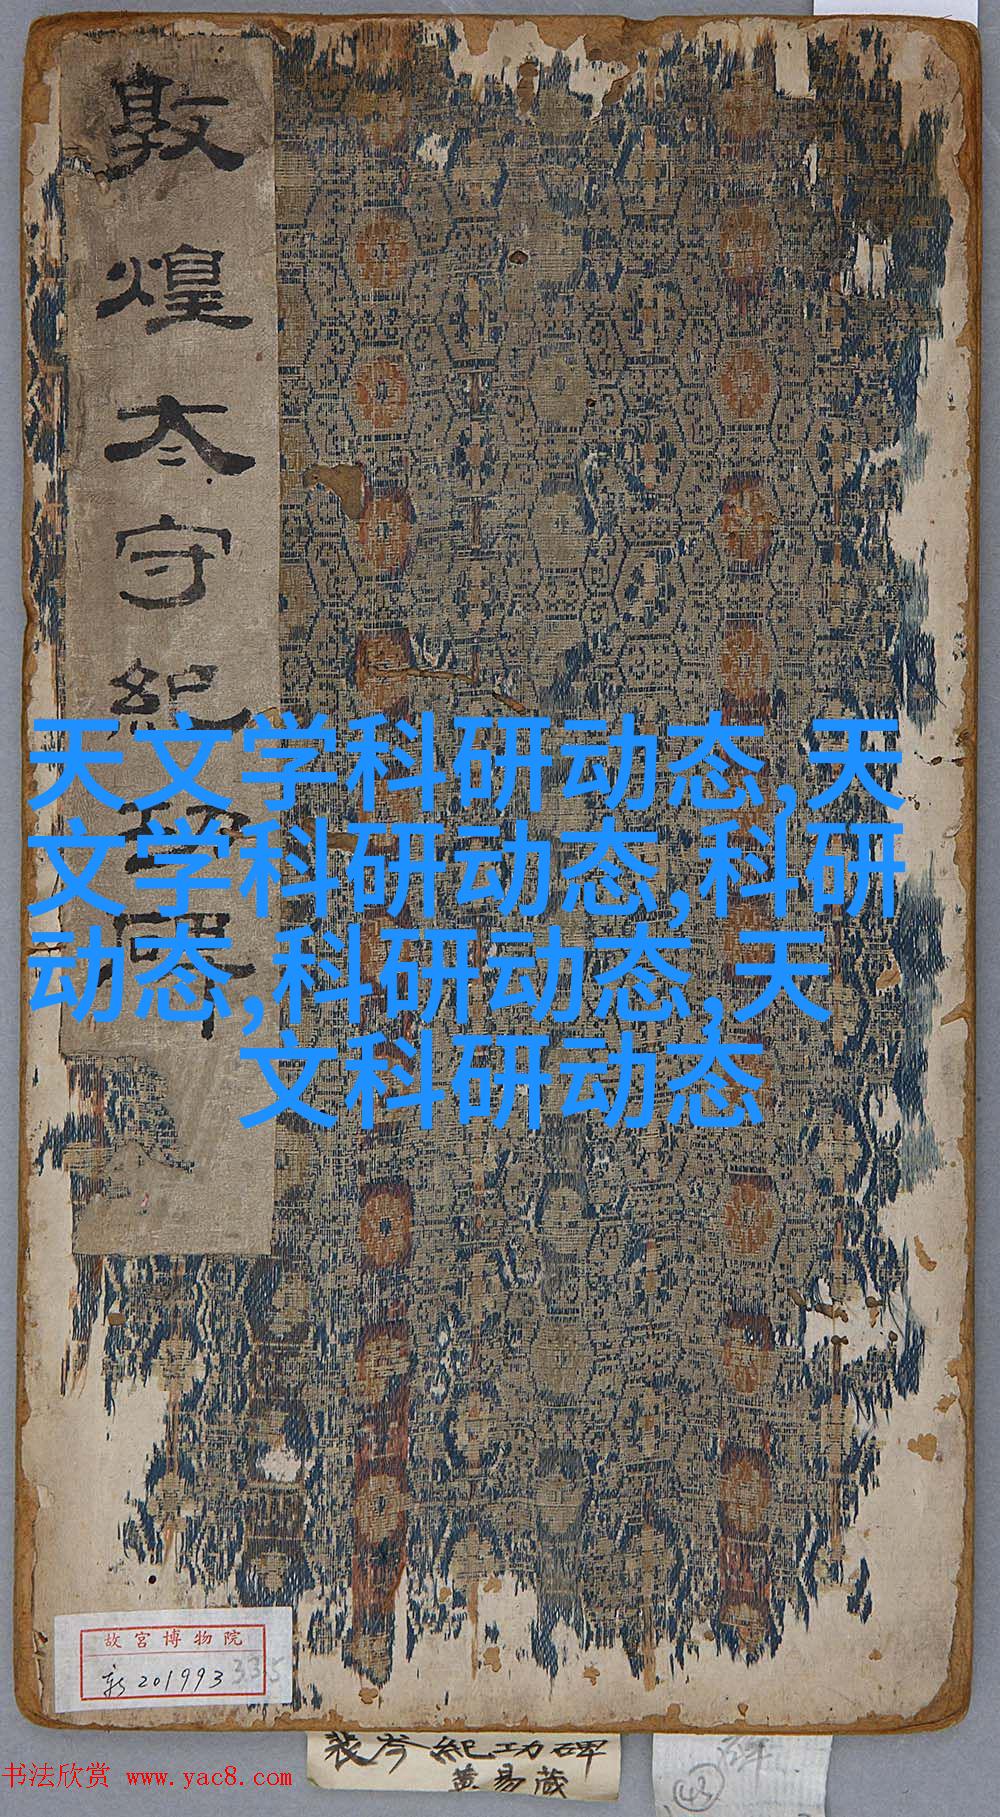 敦煌太守紀功碑
天文学科研动态,天
文学科研动态,科研
动态,科研动态,天
文科研动态
故宫博物院
新201993
335
裴岑紀功碑
黄易藏
43
书法欣赏 www.yac8.com